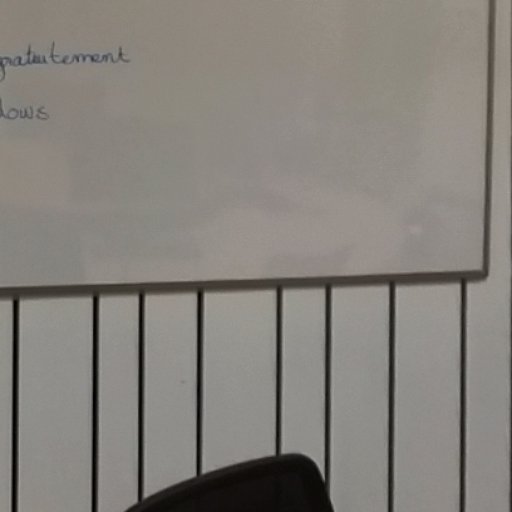 gratuitement
dows